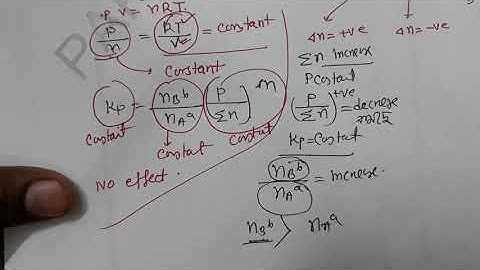 PV = nRT.
P/n = RT/V = constant
Constant
Kp = nB^b/nA^a (P/Σn)^Δn
Costant Costant Costant
No effect.
Δn = +ve Δn = -ve
Σn increase
P costat
(P/Σn)^+ve = decrese
Kp = Costat
nB^b/nA^a = increase.
nB^b > nA^a